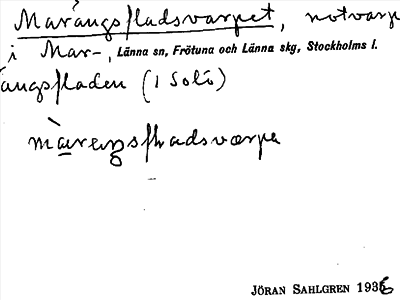 Marängsfladsvarpet, notvarp
i Mar-, Länna sn, Frötuna och Länna skg, Stockholms l.
ängsfladen (1 Solö)
JÖRAN SAHLGREN 1936